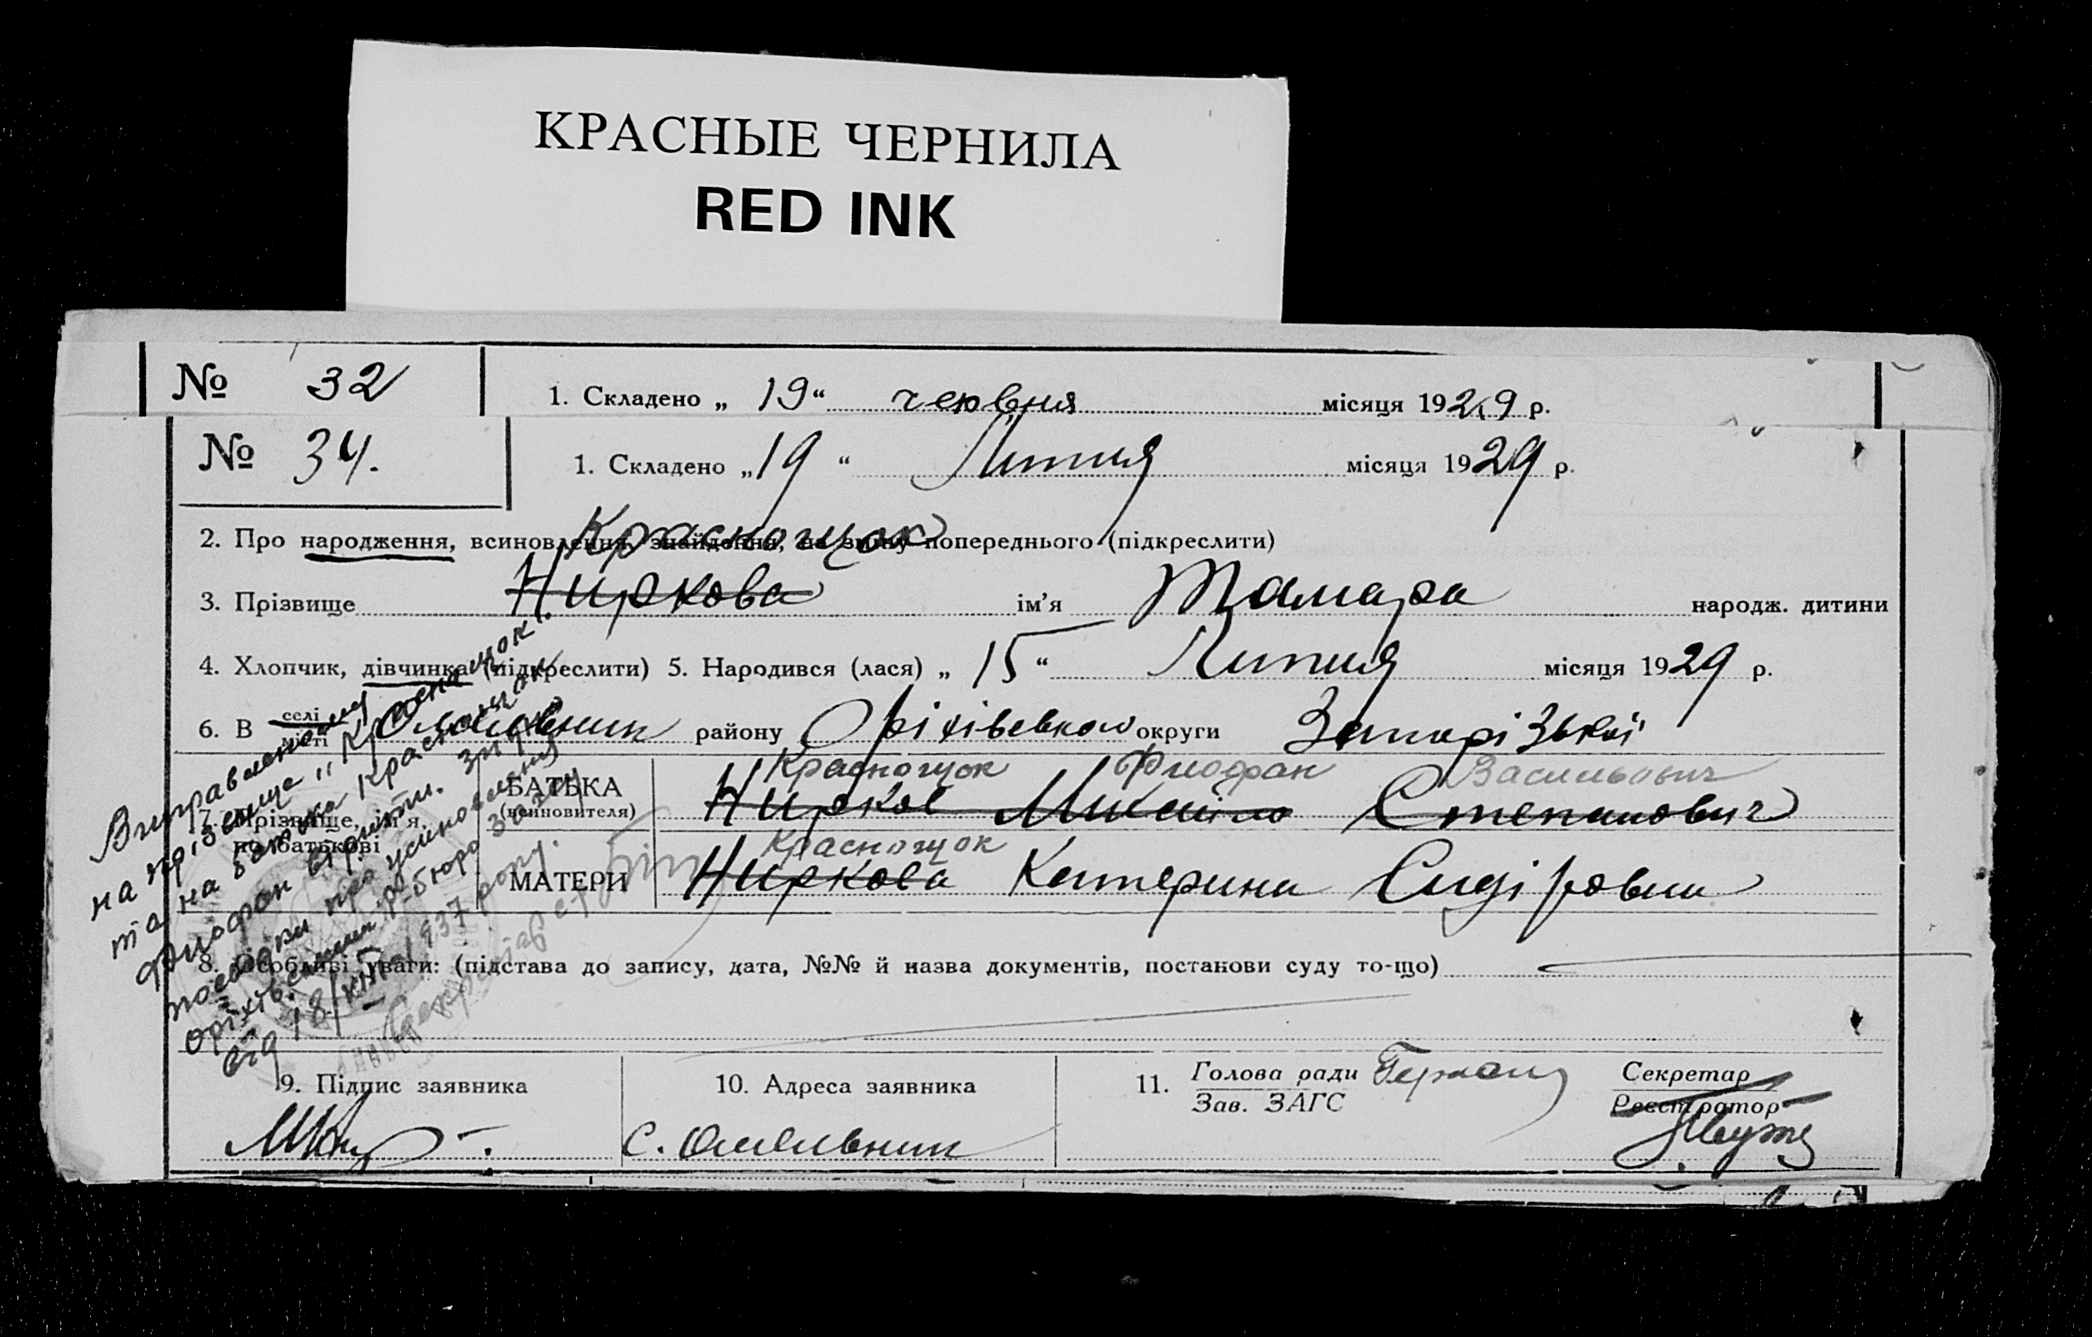 КРАСНЫЕ ЧЕРНИЛА
RED INK
№ 32
1. Складено „ 19 “ червня місяця 1929 р.
№ 34.
1. Складено „ 19 “ Липня місяця 1929 р.
Красногщок
2. Про народження, всиновлення, знайдення, на зміну попереднього (підкреслити)
3. Прізвище Ниркова ім’я Тамара народж. дитини
4. Хлопчик, дівчинка (підкреслити) 5. Народився (лася) „ 15 “ Липня місяця 1929 р.
6. В селі місті Омельник району Оріхівського округи Запорізької
Красногщок Фиофан Васильович
7. Прізвище, ім’я, по батькові
БАТЬКА (всиновителя) Нирков Михайло Степанович
Красногщок
МАТЕРИ Ниркова Катерина Сидіровна
8. Особливі уваги: (підстава до запису, дата, №№ й назва документів, постанови суду то-що)
Виправленому
на прізвище „Красногщок“
та на батька Красногщок
Фиофан вірити. Згідно
посвідки про усиновлення
Оріхівським р-бюро загсу
від 18/ 1937 року.
Секретар с/ради
9. Підпис заявника
10. Адреса заявника
с. Омельник
11. Голова ради
Зав. ЗАГС
Секретар
Реєстратор